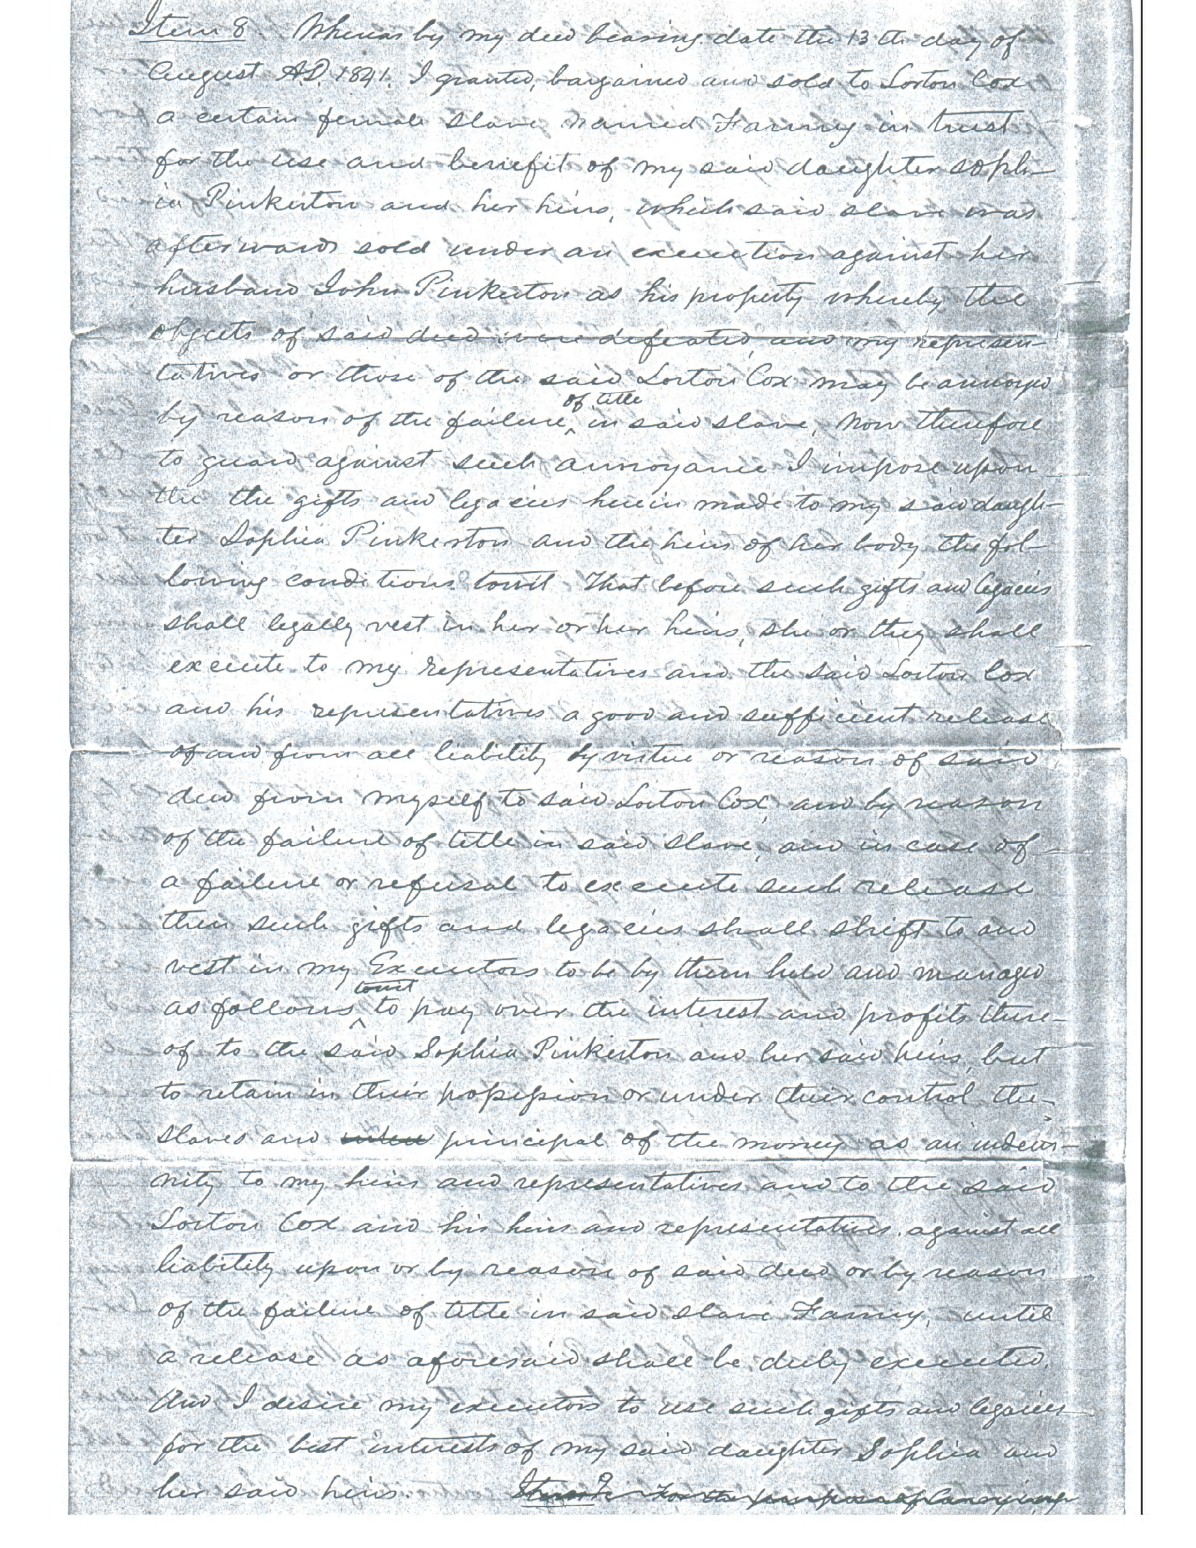 Item 8. Whereas by my deed bearing date the 13th day of
August A.D. 1841. I granted, bargained and sold to Lorton Cox
a certain female slave named Fanny in trust
for the use and benefit of my said daughter Soph-
ia Pinkerton and her heirs, which said slave was
afterwards sold under an execution against her
husband John Pinkerton as his property whereby the
objects of said deed were defeated, and my represen-
tatives or those of the said Lorton Cox may be annoyed
by reason of the failure ^of title in said slave, Now therefore
to guard against such annoyance I impose upon
the the gifts and legacies herein made to my said daugh-
ter Sophia Pinkerton and the heirs of her body the fol-
lowing conditions towit. That before such gifts and legacies
shall legally vest in her or her heirs, she or they shall
execute to my representatives and the said Lorton Cox
and his representatives a good and sufficient release
of and from all liability by virtue or reason of said
deed from myself to said Lorton Cox, and by reason
of the failure of title in said slave, and in case of
a failure or refusal to execute such release
then such gifts and legacies shall shift to and
vest in my Executors to be by them held and managed
as follows ^towit to pay over the interest and profits there-
of to the said Sophia Pinkerton and her said heirs, but
to retain in their possession or under their control the
slaves and principal of the money as an indem-
nity to my heirs and representatives and to the said
Lorton Cox and his heirs and representatives against all
liability upon or by reason of said deed or by reason
of the failure of title in said slave Fanny, until
a release as aforesaid shall be duly executed.
And I desire my executors to use such gifts and legacies
for the best interests of my said daughter Sophia and
her said heirs. Item 9. For the purpose of Carrying